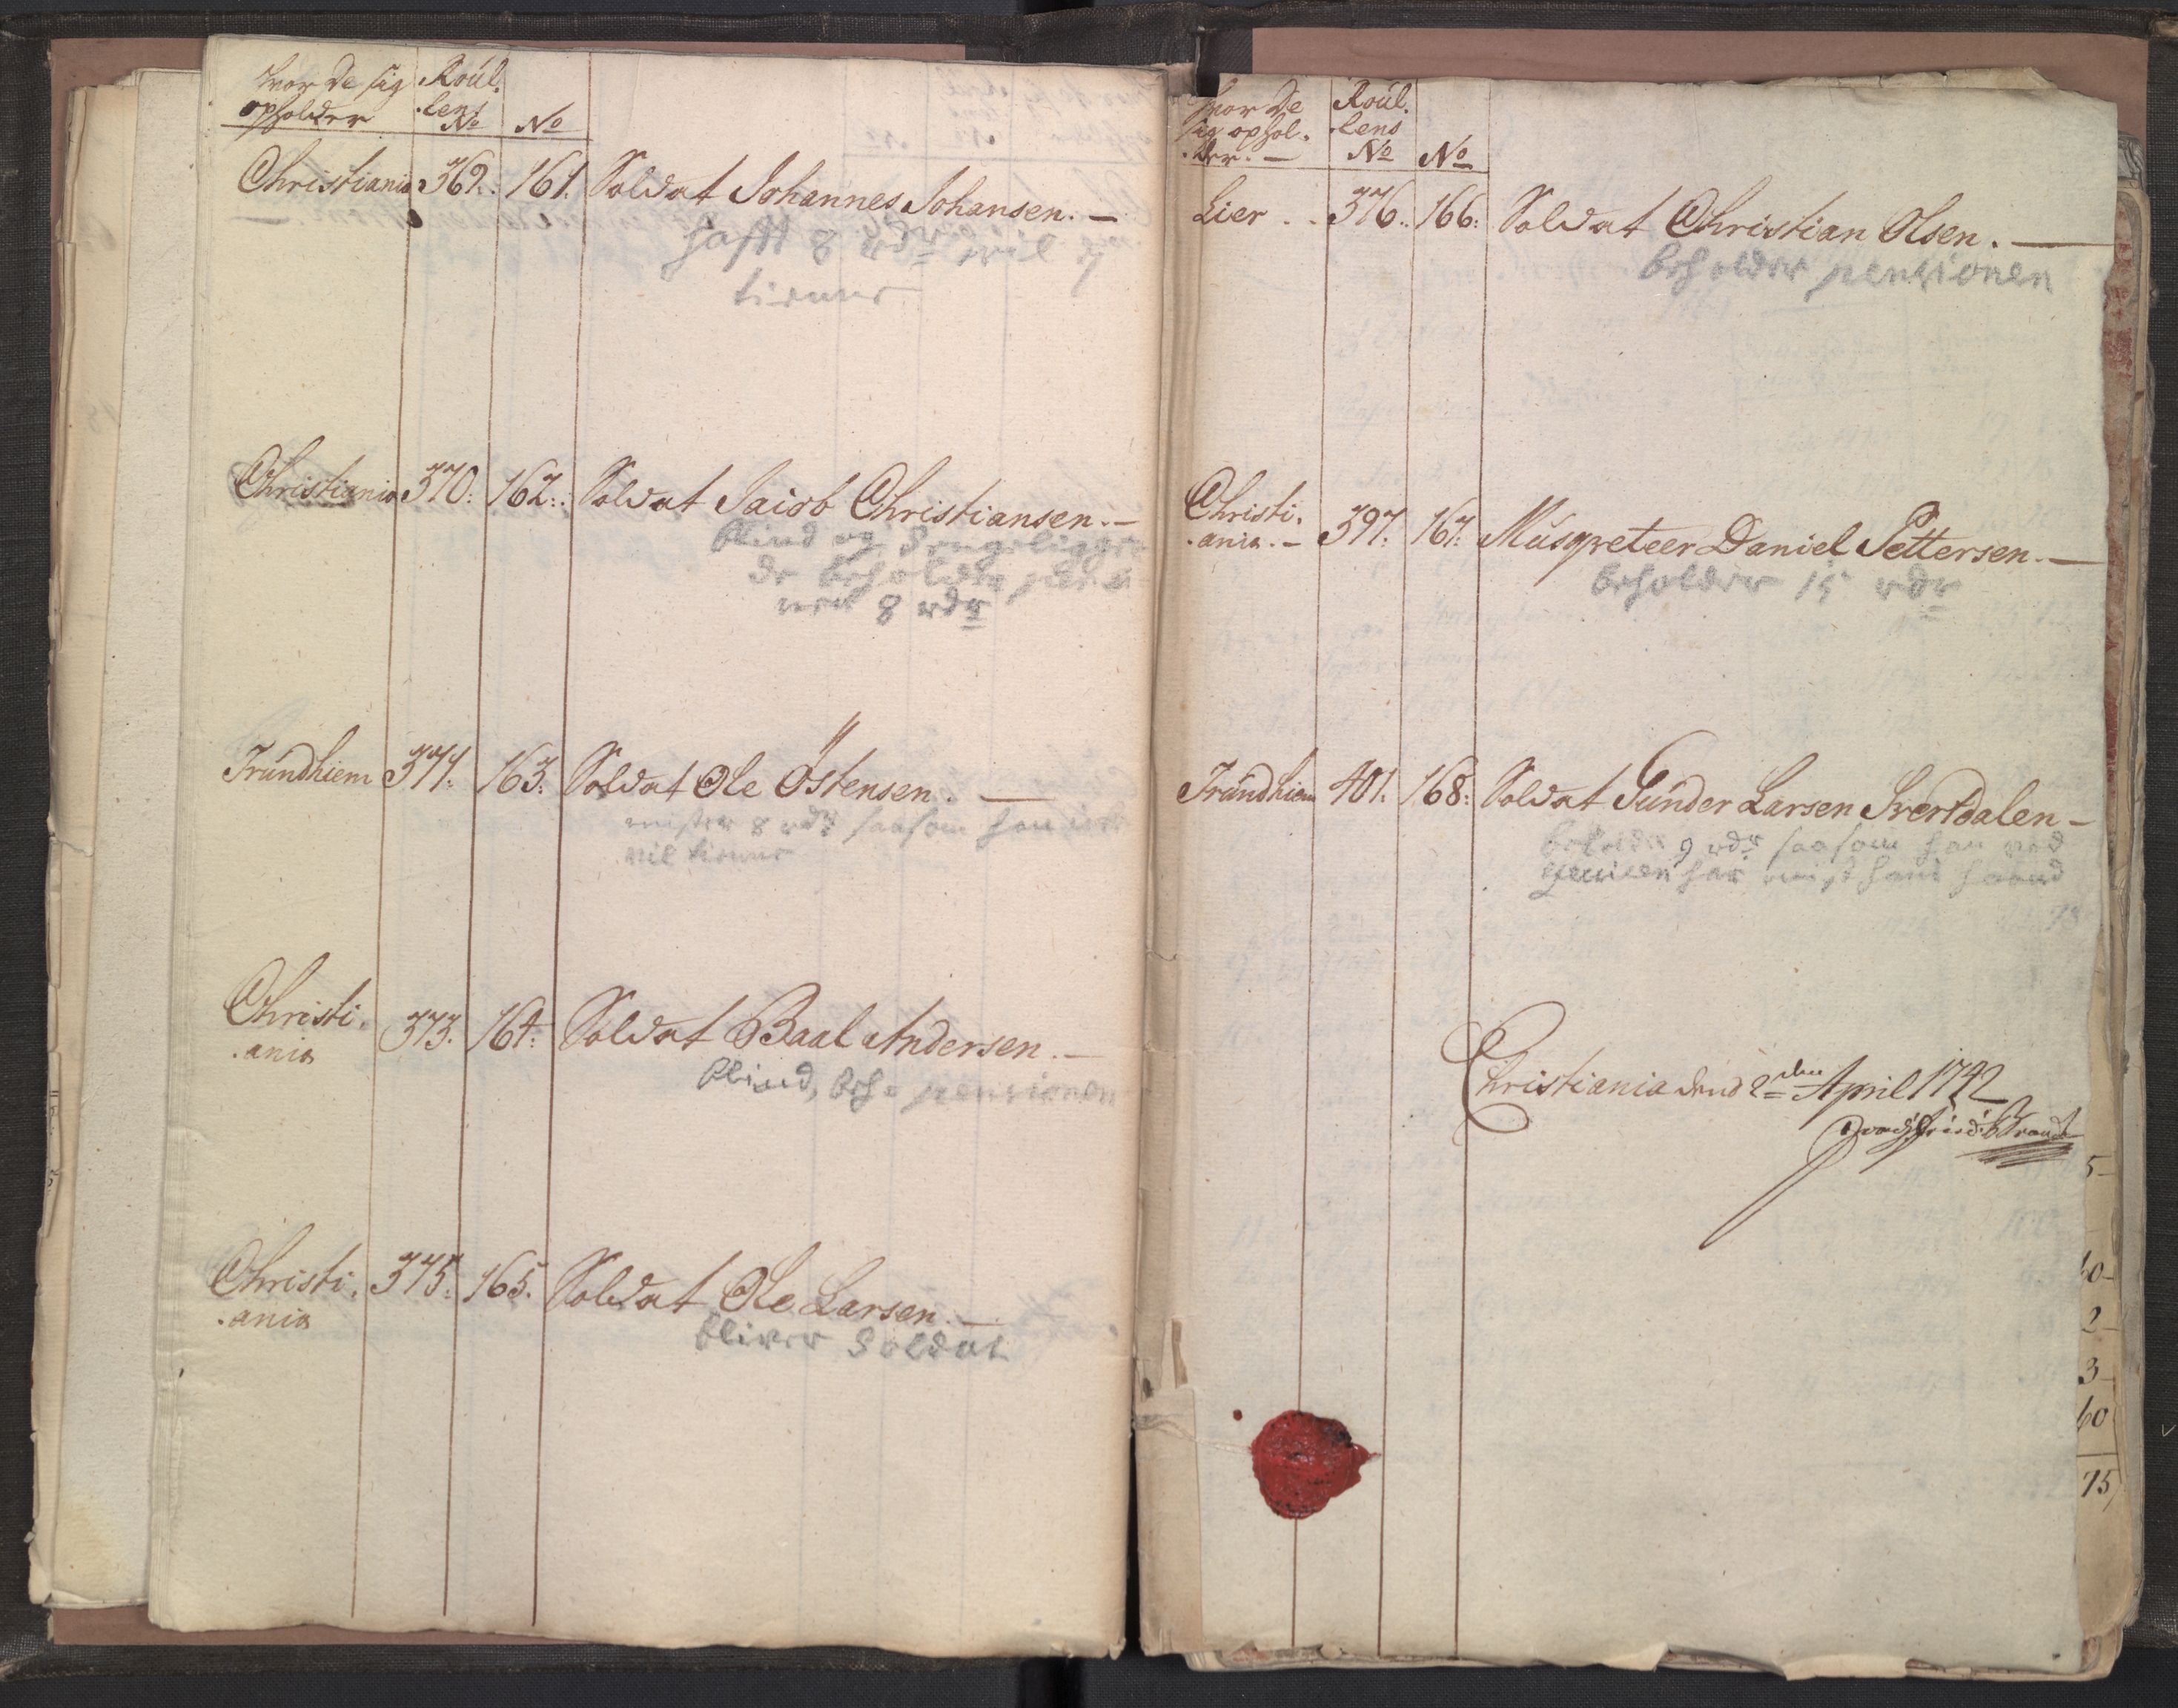 Hvor de sig Roul.
opholder .lens
No No
Christiania 369. 161. Soldat Johannes Johansen. —
hafft 8 rdr vil ey
tienne
Christiania 370. 162. Soldat Jacob Christiansen. —
blind og Sengeligge
de beholder
8 rdr
Trundhiem 371. 163. Soldat Ole Östensen. —
mister 8 rdr saasom han
vil tienne
Christi. 373. 164. Soldat Baal Andersen. —
.ania
blind, beh. pensionen
Christi. 375. 165. Soldat Ole Larsen. —
.ania
bliver Soldat
Hvor de Roul.
sig ophol. .lens
.der. — No No
Lier . . 376. 166. Soldat Christian Olsen. —
beholder pensionen
Christi.
.ania. — 397. 167. Musqveteer Daniel Pettersen. —
beholder 15 rdr
Trundhiem 401. 168. Soldat Gunder Larsen —
beholder 9 rdr saasom han ved
har mist hans haand
Christiania dend 2den April 1742
5—
60—
2—
3—
60
75